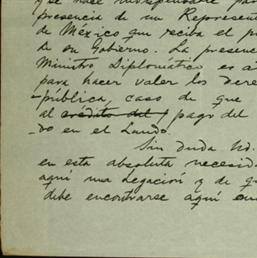 y se hace indispensable par
presencia de un Represent
de México que reciba el p
de su Gobierno. La presenc
Ministro Diplomático es a
para hacer valer los dere
pública, caso de que
al crédito del pago del
do en el Laudo.
Sin duda Ud.
en esta absoluta necesid
aquí una Legación y de q
debe encontrarse aquí en